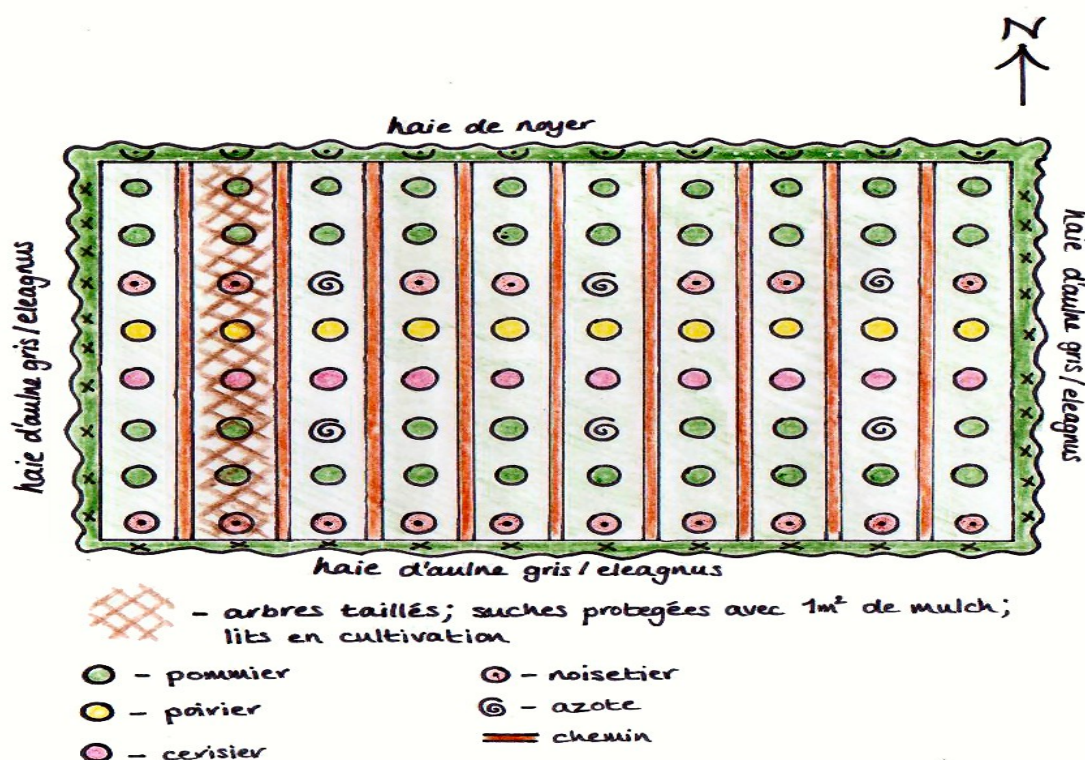 N
haie de noyer
haie d'aulne gris/eleagnus
haie d'aulne gris/eleagnus
haie d'aulne gris/eleagnus
- arbres taillés; suches protegées avec 1m² de mulch;
lits en cultivation
- pommier
- noisetier
- poirier
- azote
- cerisier
chemin